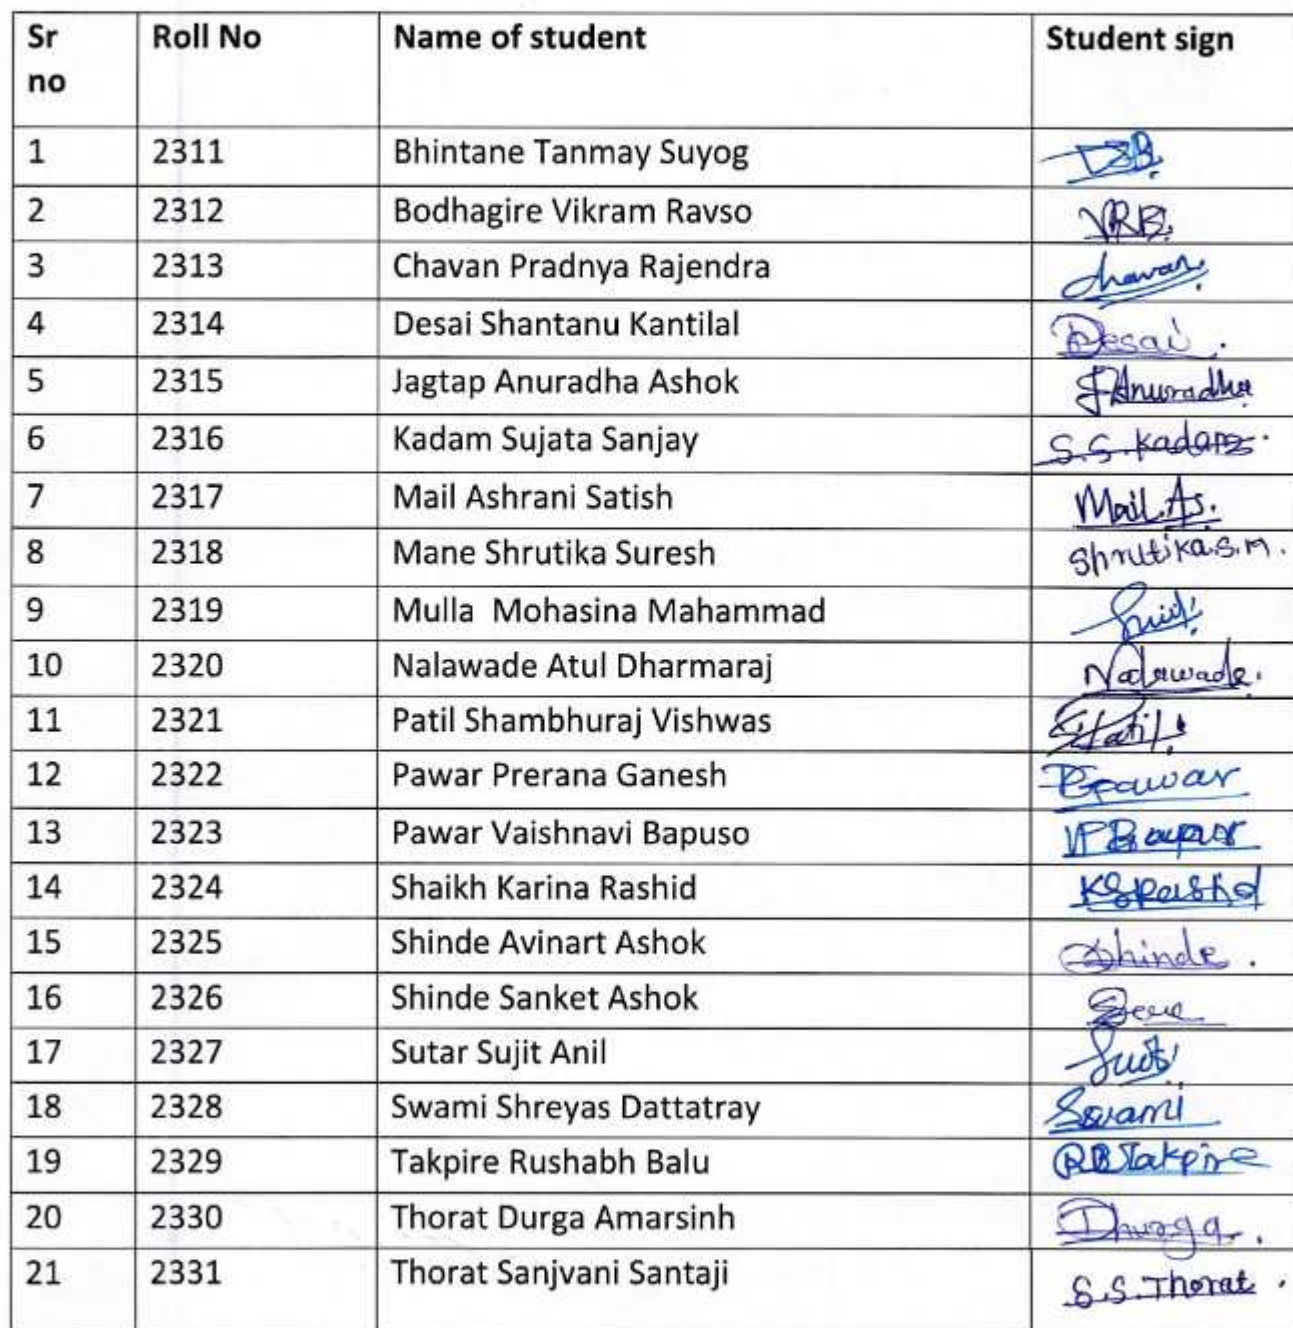 Sr no Roll No Name of student Student sign
1 2311 Bhintane Tanmay Suyog TSB
2 2312 Bodhagire Vikram Ravso VRB
3 2313 Chavan Pradnya Rajendra Chavan
4 2314 Desai Shantanu Kantilal Desai
5 2315 Jagtap Anuradha Ashok J Anuradha
6 2316 Kadam Sujata Sanjay S.S.Kadam
7 2317 Mail Ashrani Satish Mail.As.
8 2318 Mane Shrutika Suresh Shrutika.S.M.
9 2319 Mulla Mohasina Mahammad
10 2320 Nalawade Atul Dharmaraj Nalawade.
11 2321 Patil Shambhuraj Vishwas Patil
12 2322 Pawar Prerana Ganesh Pawar
13 2323 Pawar Vaishnavi Bapuso
14 2324 Shaikh Karina Rashid
15 2325 Shinde Avinart Ashok Shinde.
16 2326 Shinde Sanket Ashok
17 2327 Sutar Sujit Anil
18 2328 Swami Shreyas Dattatray Swami
19 2329 Takpire Rushabh Balu RBTakpire
20 2330 Thorat Durga Amarsinh Dhurga.
21 2331 Thorat Sanjvani Santaji S.S.Thorat.